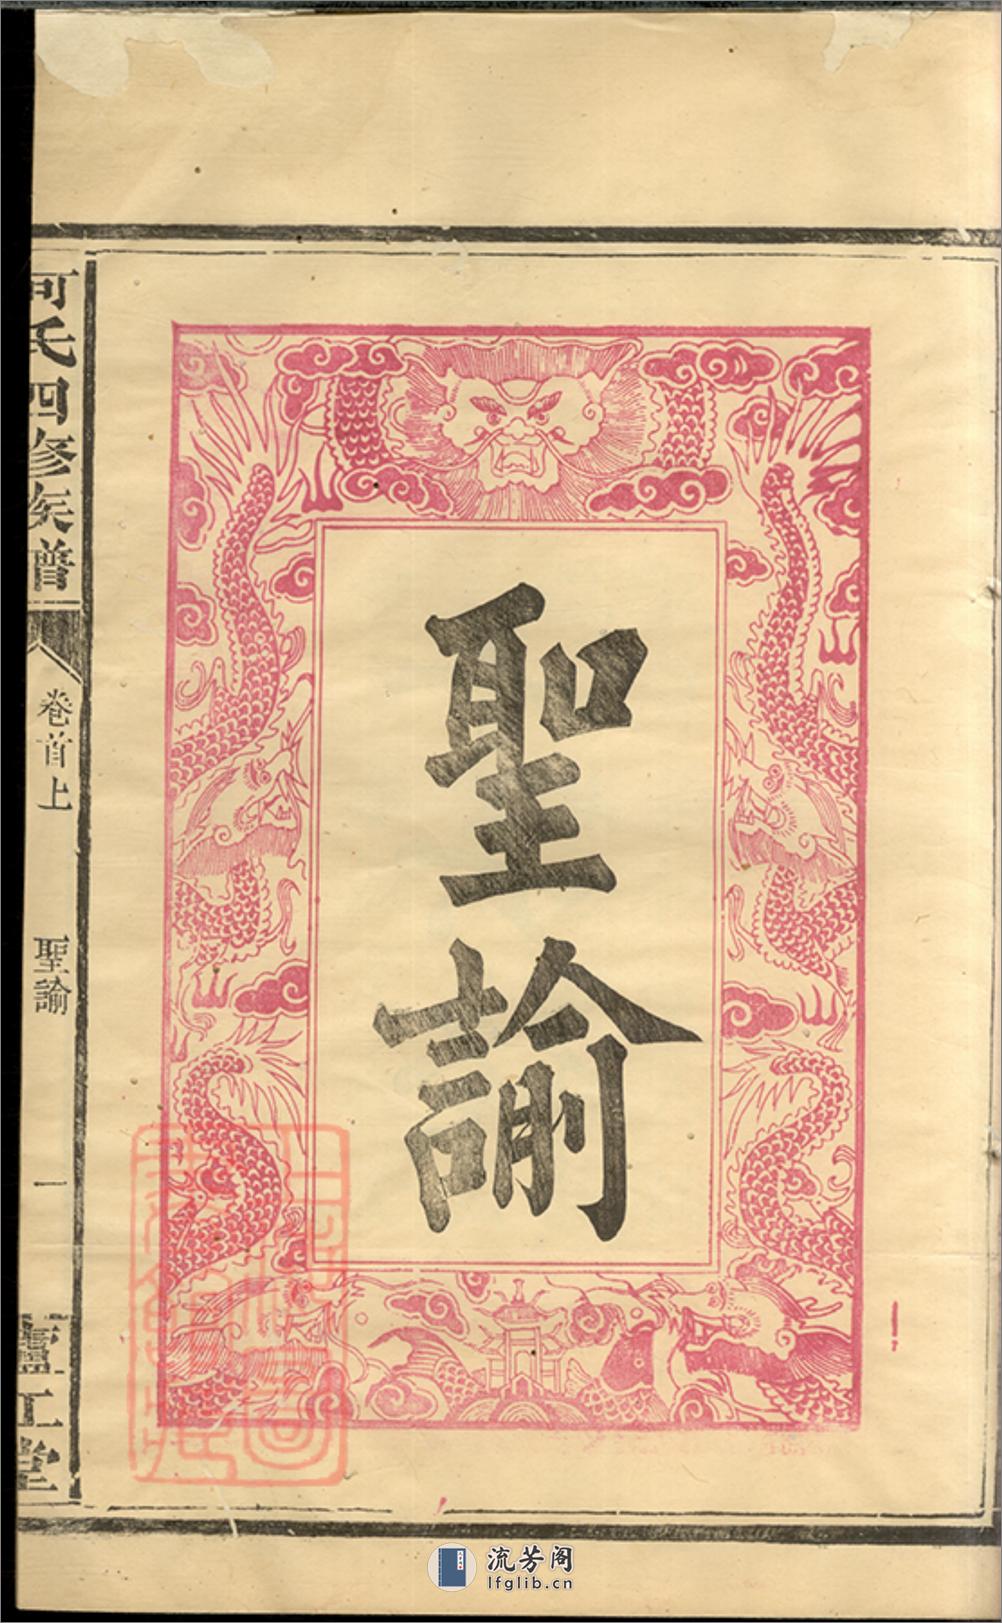 聖諭
何氏四修族譜
卷首上
聖諭
一
廬江堂
流芳阁
lfglib.cn